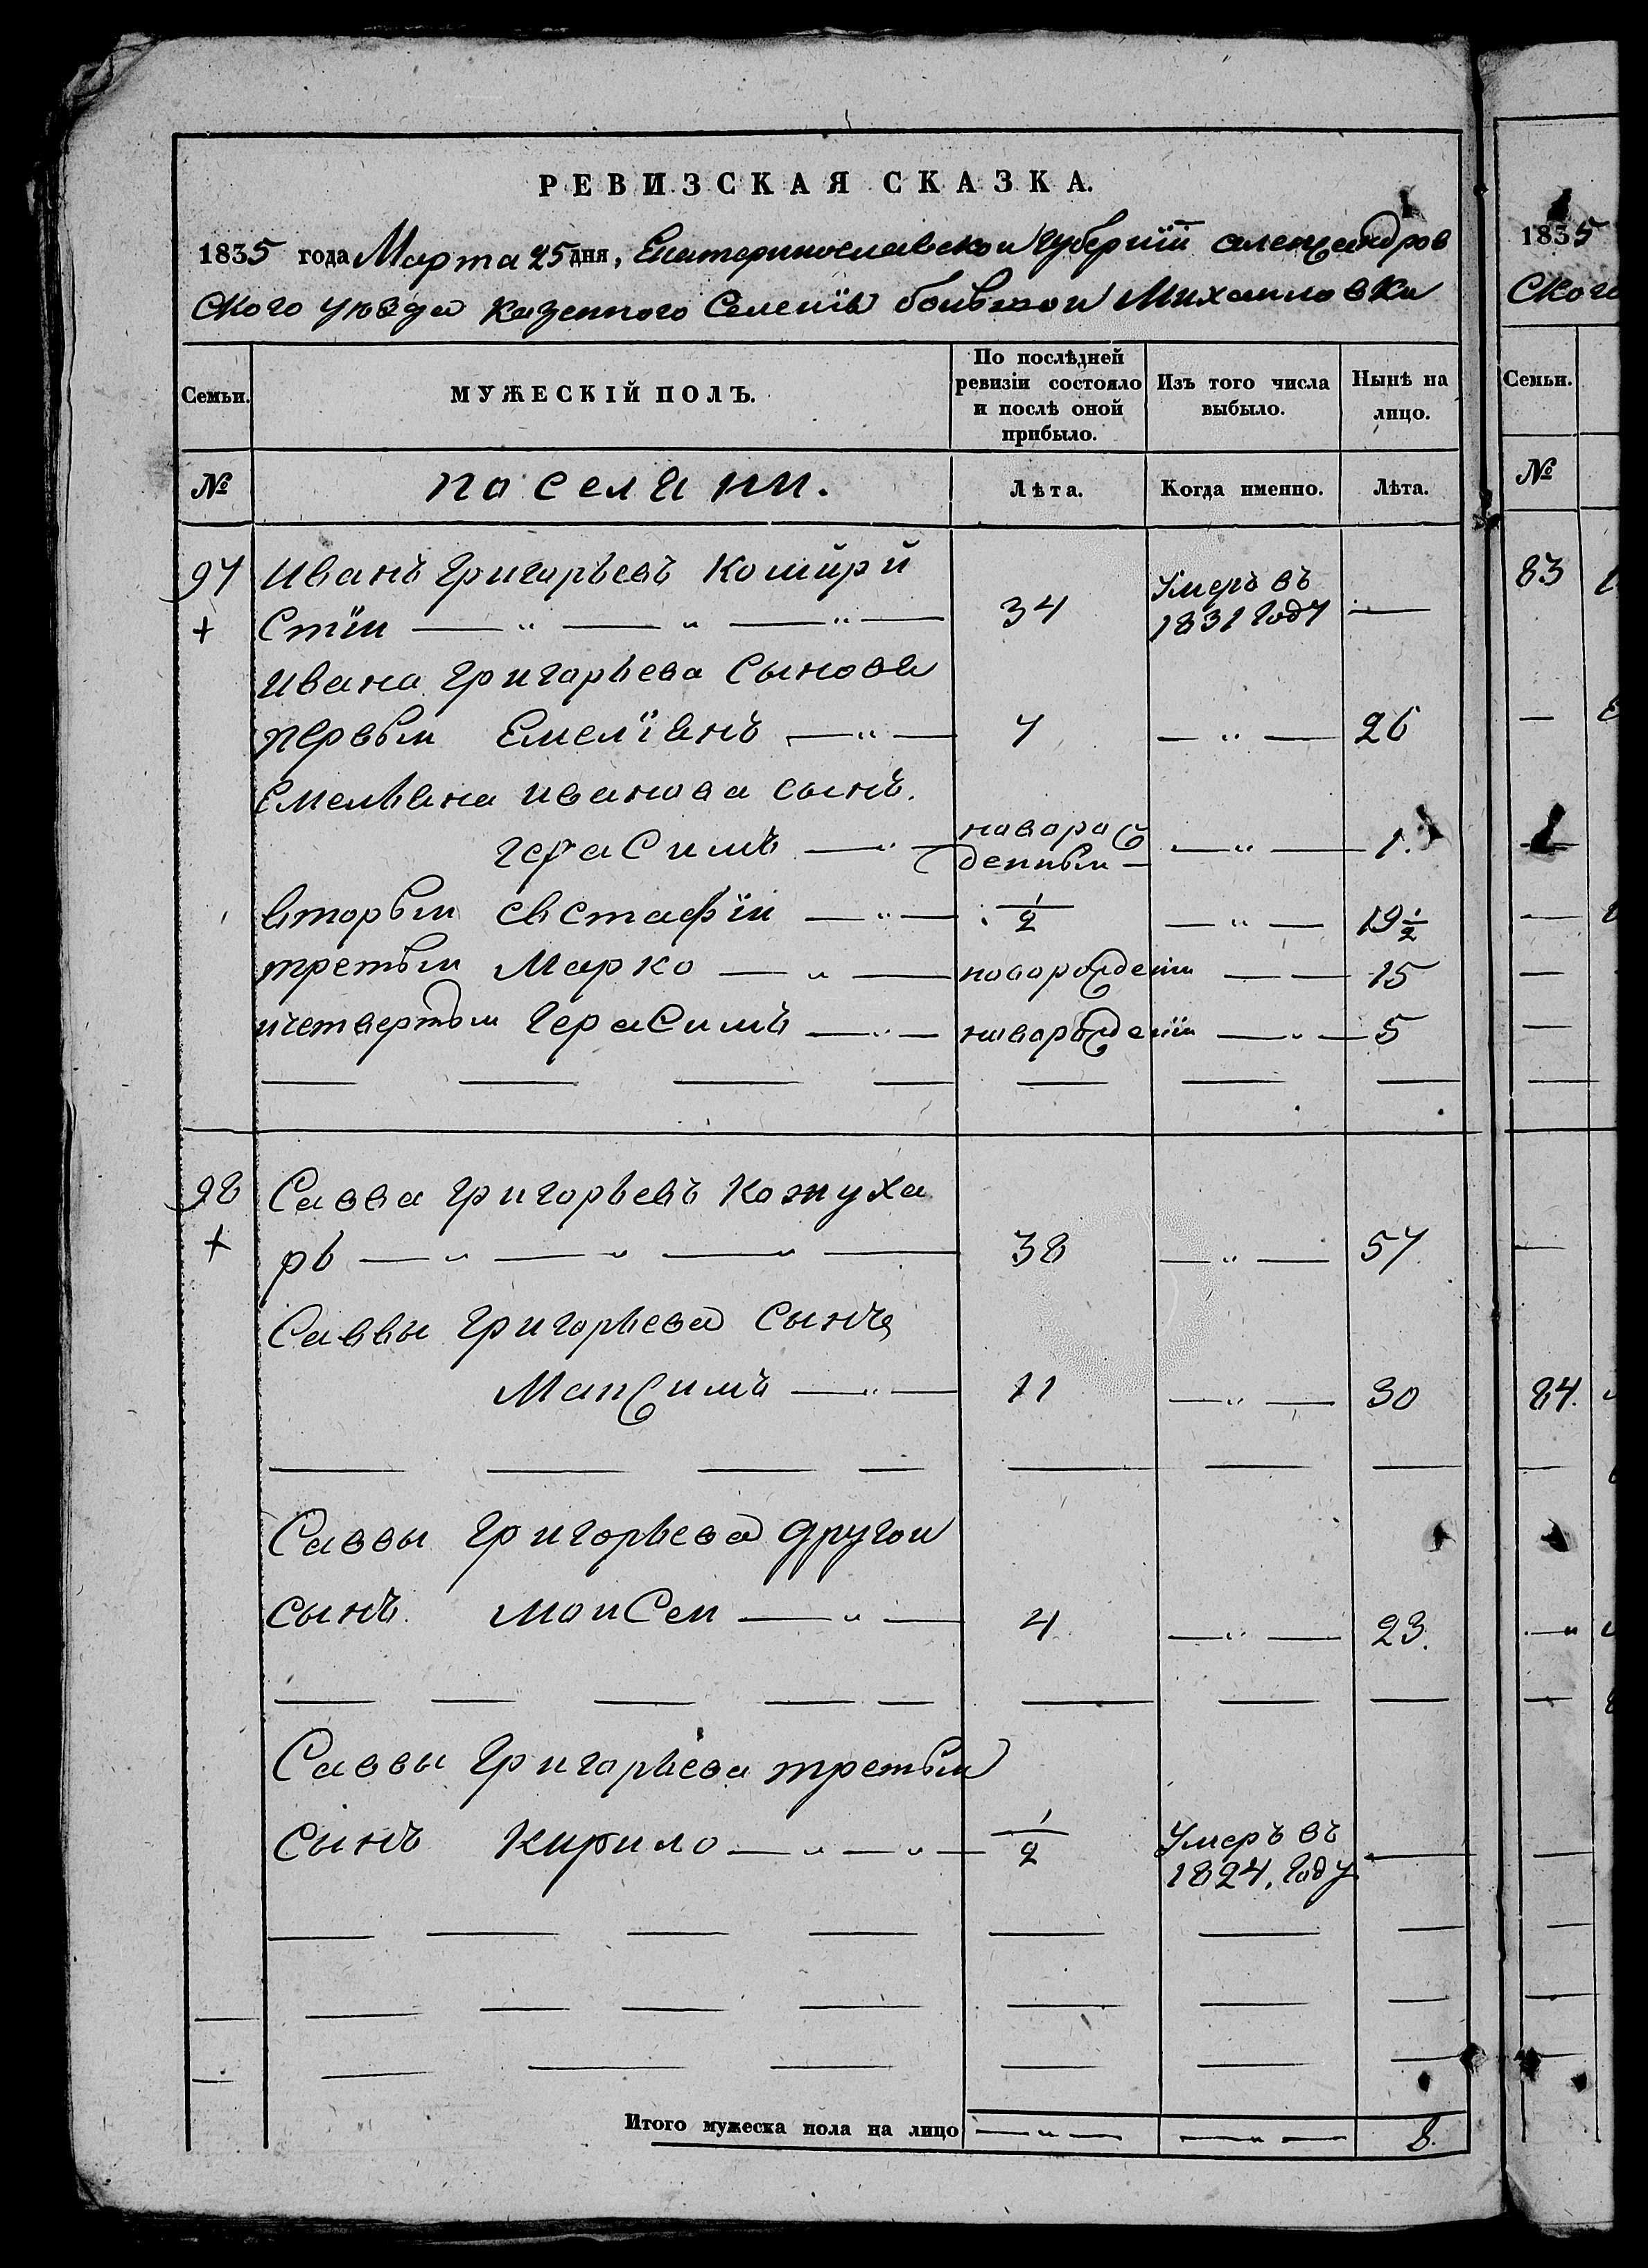 РЕВИЗСКАЯ СКАЗКА.
1835 года Марта 25 дня, Екатеринославской Губернїй александров
ского уѣзда казенного Селенїя болшой Михаиловки
Семьи.
МУЖЕСКІЙ ПОЛЪ.
По послѣдней ревизіи состояло и послѣ оной прибыло.
Изъ того числа выбыло.
Нынѣ на лицо.
№
поселяни.
Лѣта.
Когда именно.
Лѣта.
97 Иванъ Григорьевъ
+ Стїи — " — " — " — 34 Умеръ въ 1831 году —
Ивана Григорьева Сынова
первыи Емелїянъ — " — 7 — " — 26
Емельяна Иванова сынъ.
Герасимъ — " — новорожденныи — " — 1.
вторыи евстафїи — " — 1/2 — " — 19 1/2
третьи Марко — " — новорожденїи — — 15
ичетвертои Герасимъ — " — новорожденїи — " — 5
98 Савва Григорьевъ Кожуха
+ рь — " — " — " — 38 — " — 57
Саввы Григорьева Сынъ
Максимъ — " — 11 — " — 30
Саввы Григорьева другои
сынъ моисеи — " — 4 — " — 23.
Саввы Григорьева третьи
сынъ Кирило — " — " — 1/2 Умеръ въ 1824. году —
Итого мужеска пола на лицо — " — — " — 8.
1835
Ского
Семьи.
№
83
84.